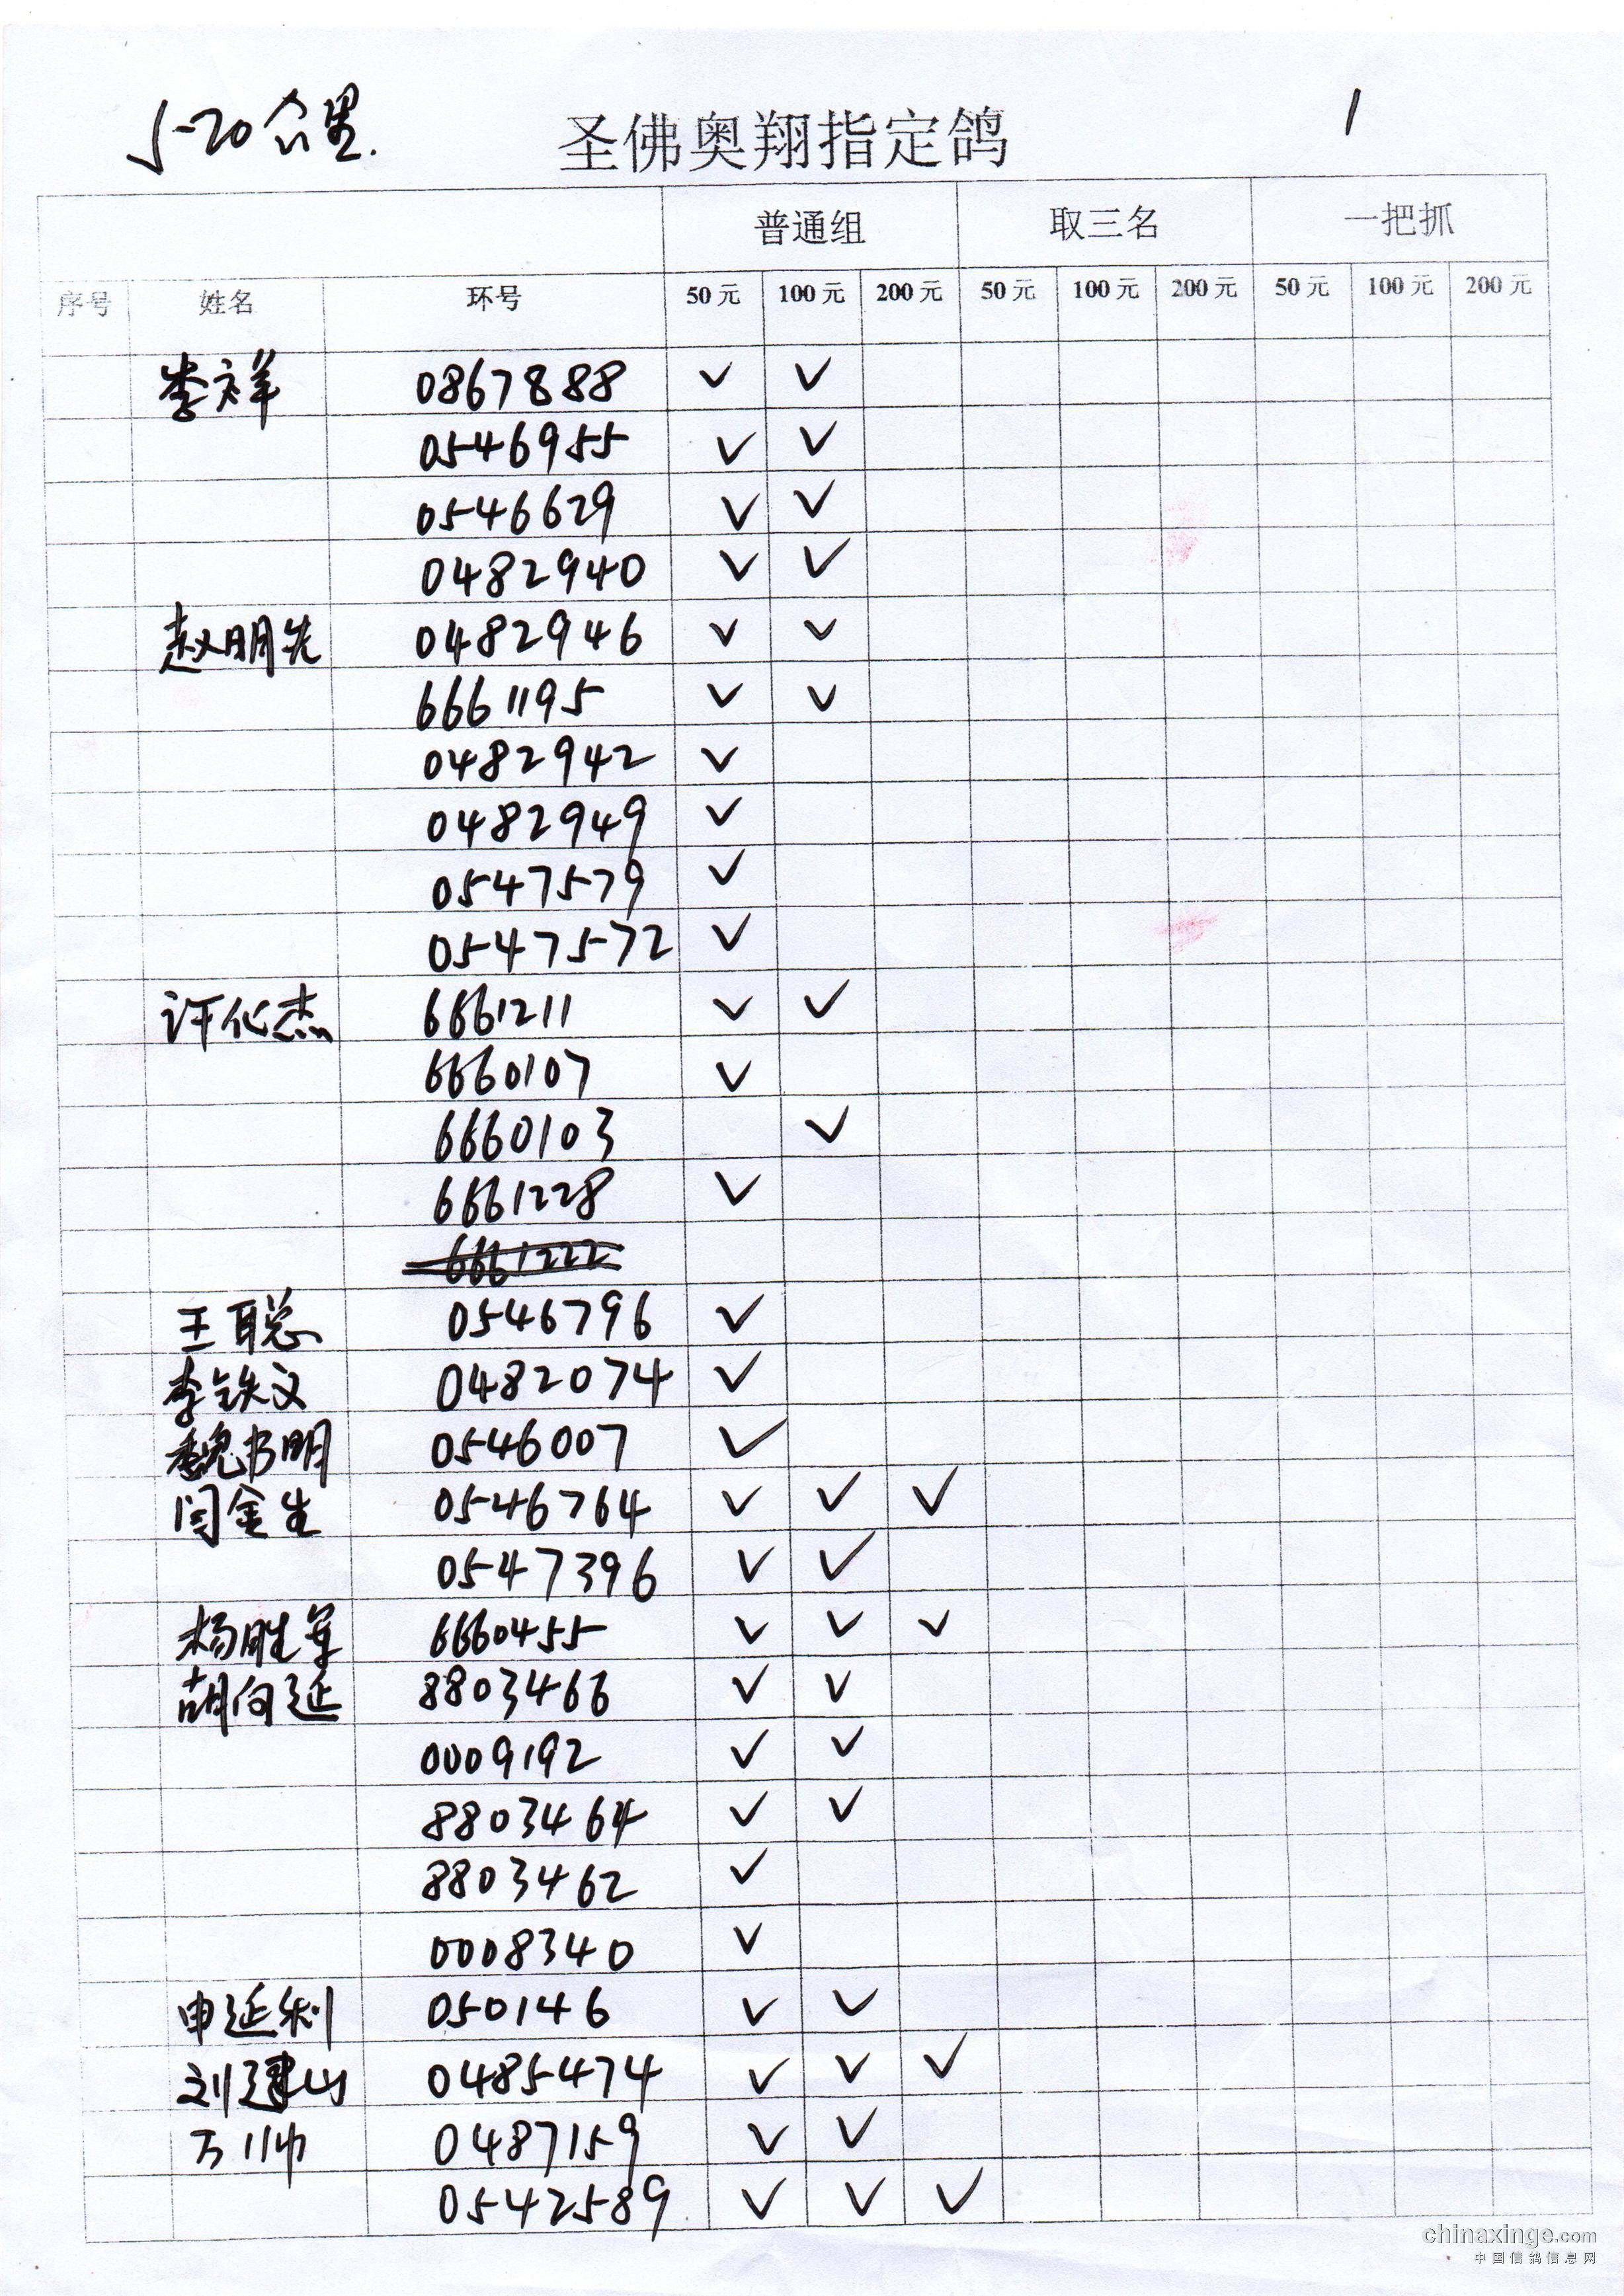 5-20公里. 圣佛奥翔指定鸽 1
普通组 取三名 一把抓
序号 姓名 环号 50元 100元 200元 50元 100元 200元 50元 100元 200元
李祥 0867888 ✓ ✓
0546955 ✓ ✓
0546629 ✓ ✓
0482940 ✓ ✓
赵明先 0482946 ✓ ✓
6661195 ✓ ✓
0482942 ✓
0482949 ✓
0547579 ✓
0547572 ✓
许化杰 6661211 ✓ ✓
6660107 ✓
6660103 ✓
6661228 ✓
6661222
王聪 0546796 ✓
李铁文 0482074 ✓
魏书明 0546007 ✓
闫金生 0546764 ✓ ✓ ✓
0547396 ✓ ✓
杨胜军 6660455 ✓ ✓ ✓
胡向延 8803466 ✓ ✓
0009192 ✓ ✓
8803464 ✓ ✓
8803462 ✓
0008340 ✓
申延利 050146 ✓ ✓
刘建山 0485474 ✓ ✓ ✓
万帅 0487159 ✓ ✓
0542589 ✓ ✓ ✓
chinaxinge.com
中国信鸽信息网